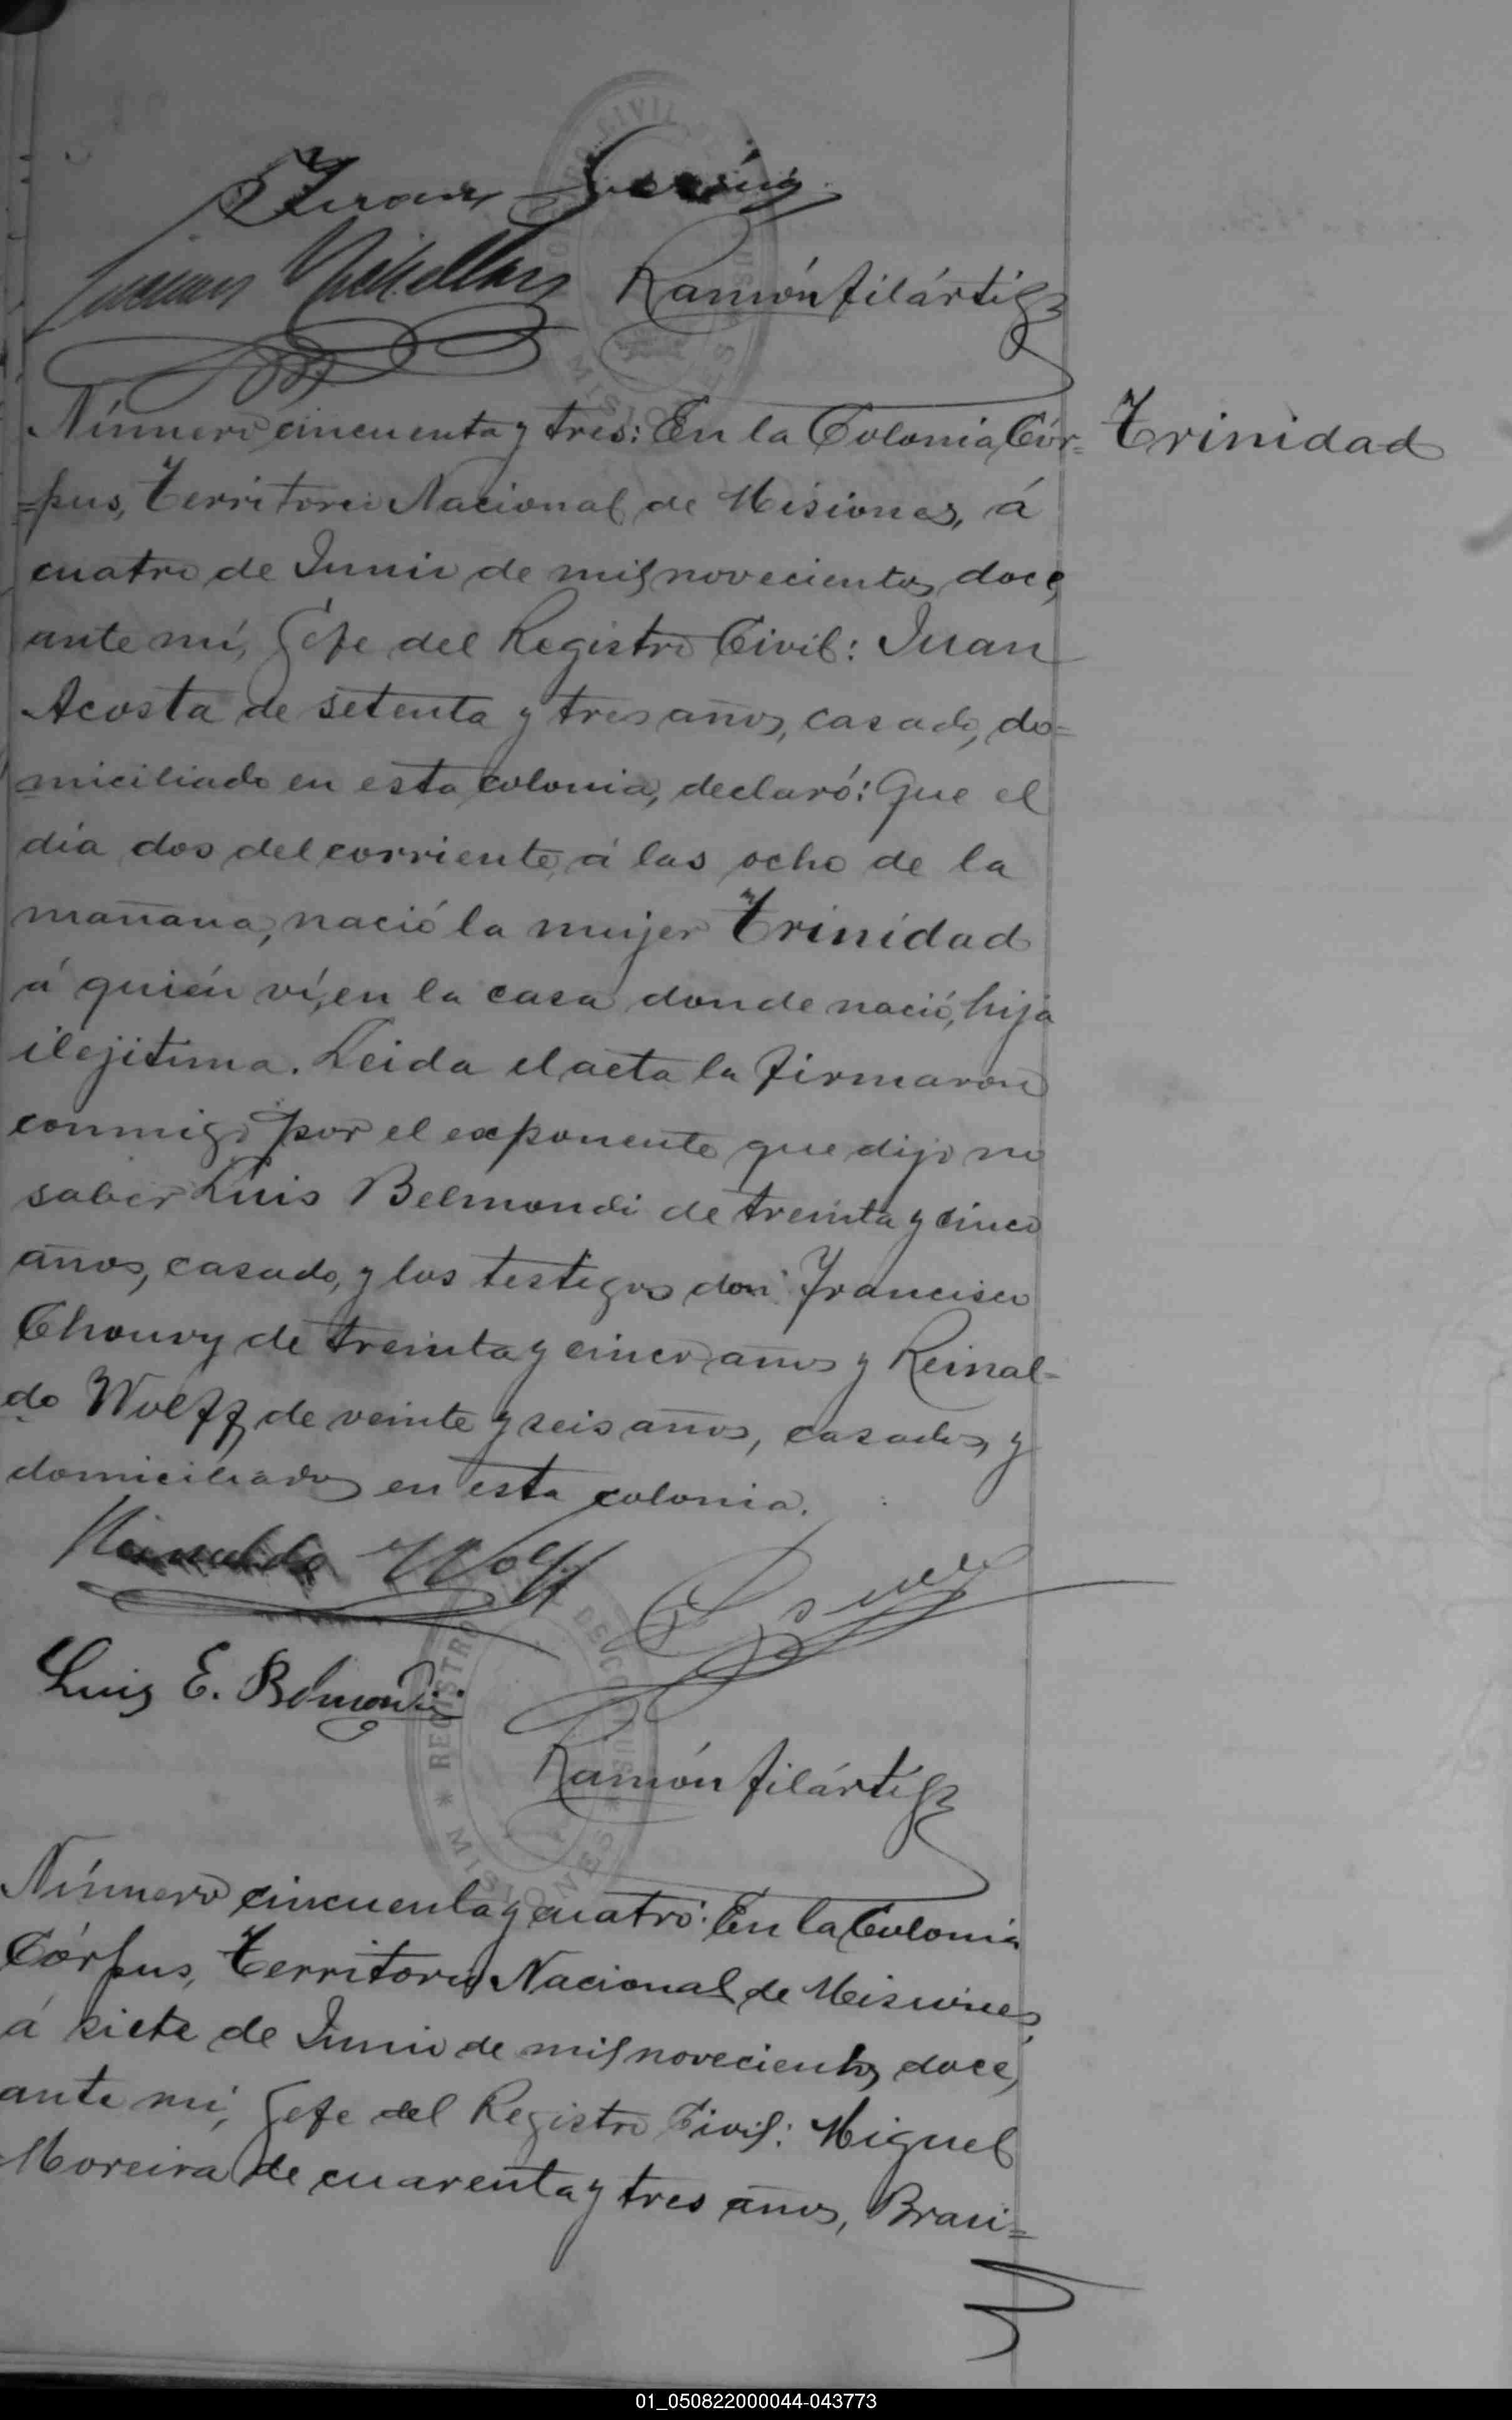 Juan
Ramón Filártiga
Número cincuenta y tres: En la Colonia Cór-
=pus, Territorio Nacional de Misiones, á
cuatro de Junio de mil novecientos doce,
ante mí, Gefe del Registro Civil: Juan
Acosta de setenta y tres años, casado, do=
miciliado en esta colonia, declaró: Que el
día dos del corriente, á las ocho de la
mañana, nació la mujer Trinidad
á quién ví, en la casa donde nació, hija
ilejitima. Leida el acta la firmaron
conmigo por el exponente que dijo no
saber Luis Belmondi de treinta y cinco
años, casado, y los testigos don Francisco
Chouvy de treinta y cinco años y Reinal=
do Wolff, de veinte y seis años, casados, y
domiciliados en esta colonia.
Trinidad
Reinaldo Wolff
Luis E. Belmondi
Ramón Filártiga
REGISTRO
MISIONES
Número cincuenta y cuatro: En la Colonia
Córpus, Territorio Nacional de Misiones,
á siete de Junio de mil novecientos doce,
ante mí, Gefe del Registro Civil: Miguel
Moreira de cuarenta y tres años, Brasi=
01_050822000044-043773